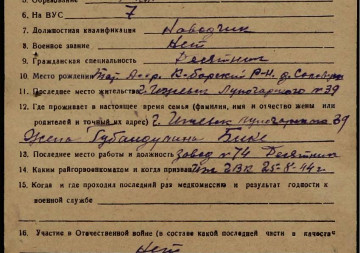 5. Образование
6. На ВУС 7
7. Должностная квалификация Наводчик
8. Военное звание Нет
9. Гражданская специальность Десятник
10. Место рождения Тат. Асср. К-борский Р-н. д.
11. Последнее место жительства г. Ижевск Луногарского №39
12. Где проживает в настоящее время семья (фамилия, имя и отчество жены или
родителей и точный их адрес) г. Ижевск 39
Жена Губайдулина
13. Последнее место работы и должность завод №74 Десятник
14. Каким райгорвоенкоматом и когда призван Иж ГВК 25-X-44г.
15. Когда и где проходил последний раз медкомиссию и результат годности к
военной службе
16. Участие в Отечественной войне (в составе какой последней части в качестве
Нет